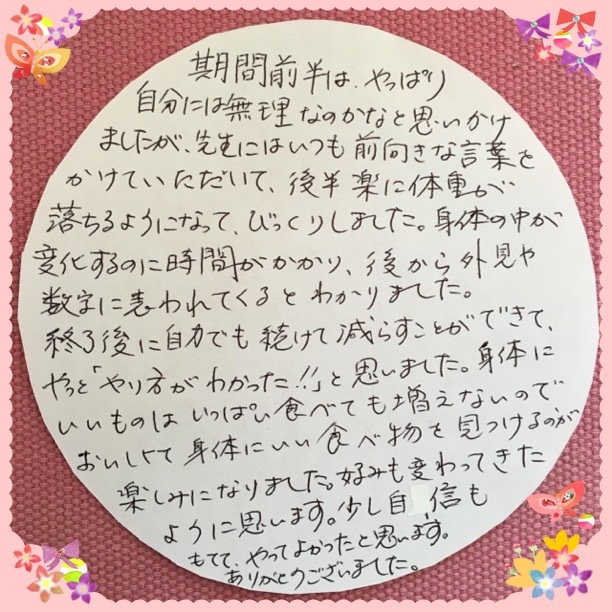 期間前半は、やっぱり
自分には無理なのかなと思いかけ
ましたが、先生にはいつも前向きな言葉を
かけていただいて、後半楽に体重が
落ちるようになって、びっくりしました。身体の中が
変化するのに時間がかかり、後から外見や
数字に表われてくるとわかりました。
終了後に自力でも続けて減らすことができて、
やっと「やり方がわかった!!」と思いました。身体に
いいものはいっぱい食べても増えないので
おいしくて身体にいい食べ物を見つけるのが
楽しみになりました。好みも変わってきた
ように思います。少し自信も
もてて、やってよかったと思います。
ありがとうございました。